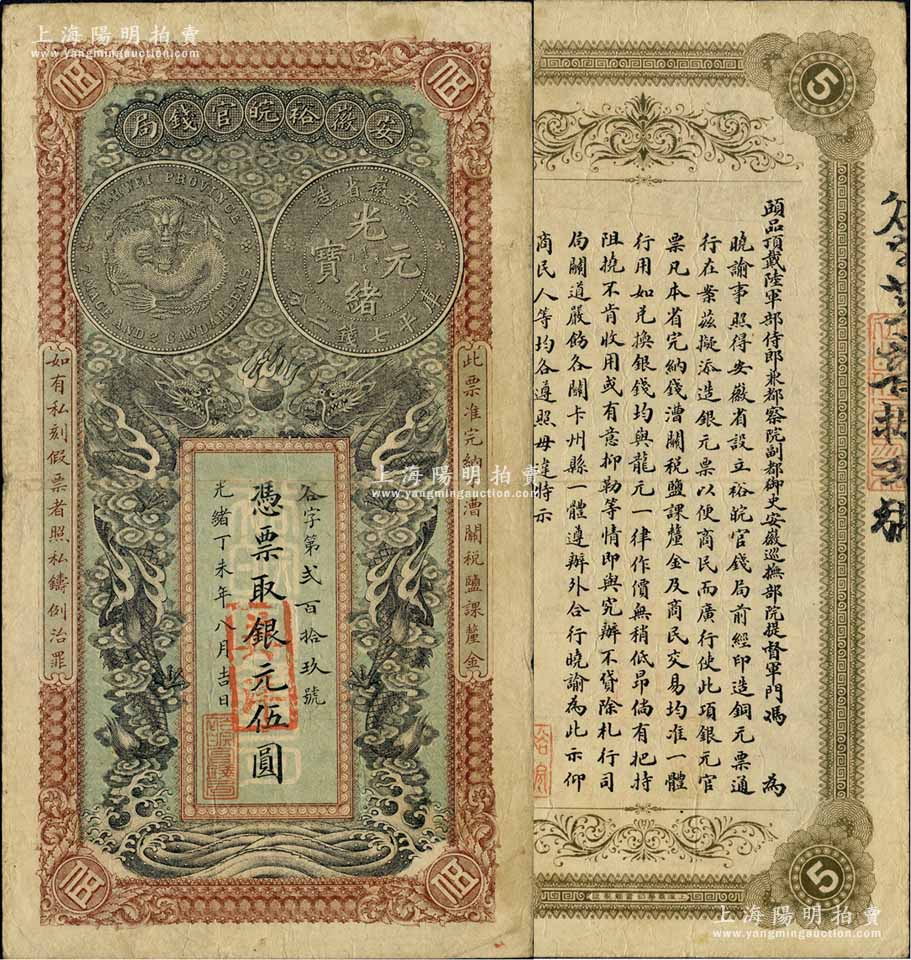 上海陽明拍賣
www.yangmingauction.com
安徽裕皖官錢局
伍
伍
AN-HWEI PROVINCE
7 MACE AND 2 CANDAREENS
安徽省造
光緒元寶
此票准完納錢漕關稅鹽課釐金
如有私刻假票者照私鑄例治罪
谷字第貳百拾玖號
憑票取銀元伍圓
光緒丁未年八月吉日
伍
伍
上海陽明拍賣
www.yangmingauction.com
5
頭品頂戴陸軍部侍郎兼都察院副都御史安徽巡撫部院提督軍門馮 為
曉諭事照得安徽省設立裕皖官錢局前經印造銅元票通
行在案茲擬添造銀元票以便商民而廣行使此項銀元官
票凡本省完納錢漕關稅鹽課釐金及商民交易均准一體
行用如兌換銀錢均與龍元一律作價無稍低昂倘有把持
阻撓不肯收用或有意抑勒等情即與究辦不貸除札行司
局關道嚴飭各關卡州縣一體遵辦外合行曉諭為此示仰
商民人等均各遵照毋違特示
5
上海陽明拍賣
www.yangmingauction.com